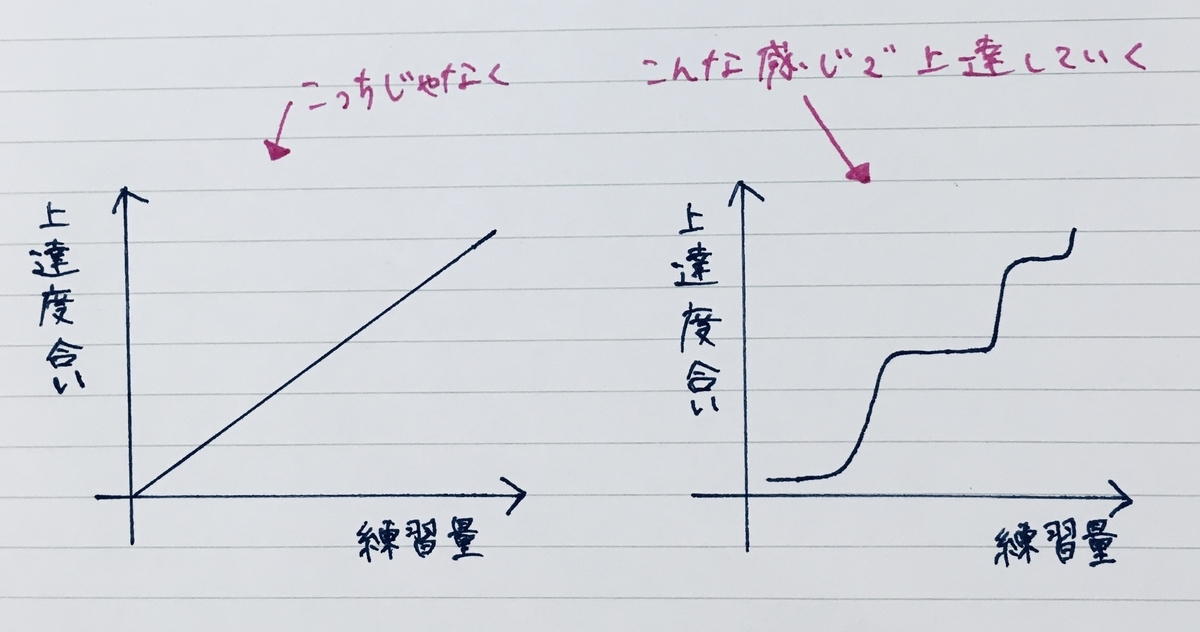 こっちじゃなく
こんな感じで上達していく
上達度合い
練習量
上達度合い
練習量